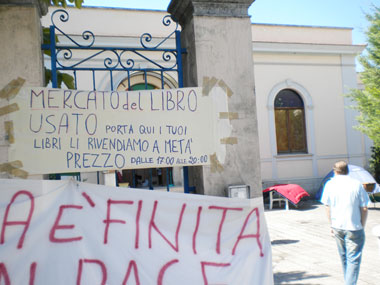 MERCATO del LIBRO
USATO PORTA QUI I TUOI
LIBRI LI RIVENDIAMO A META'
PREZZO DALLE 17.00 ALLE 20:00
A E' FINITA
PACE